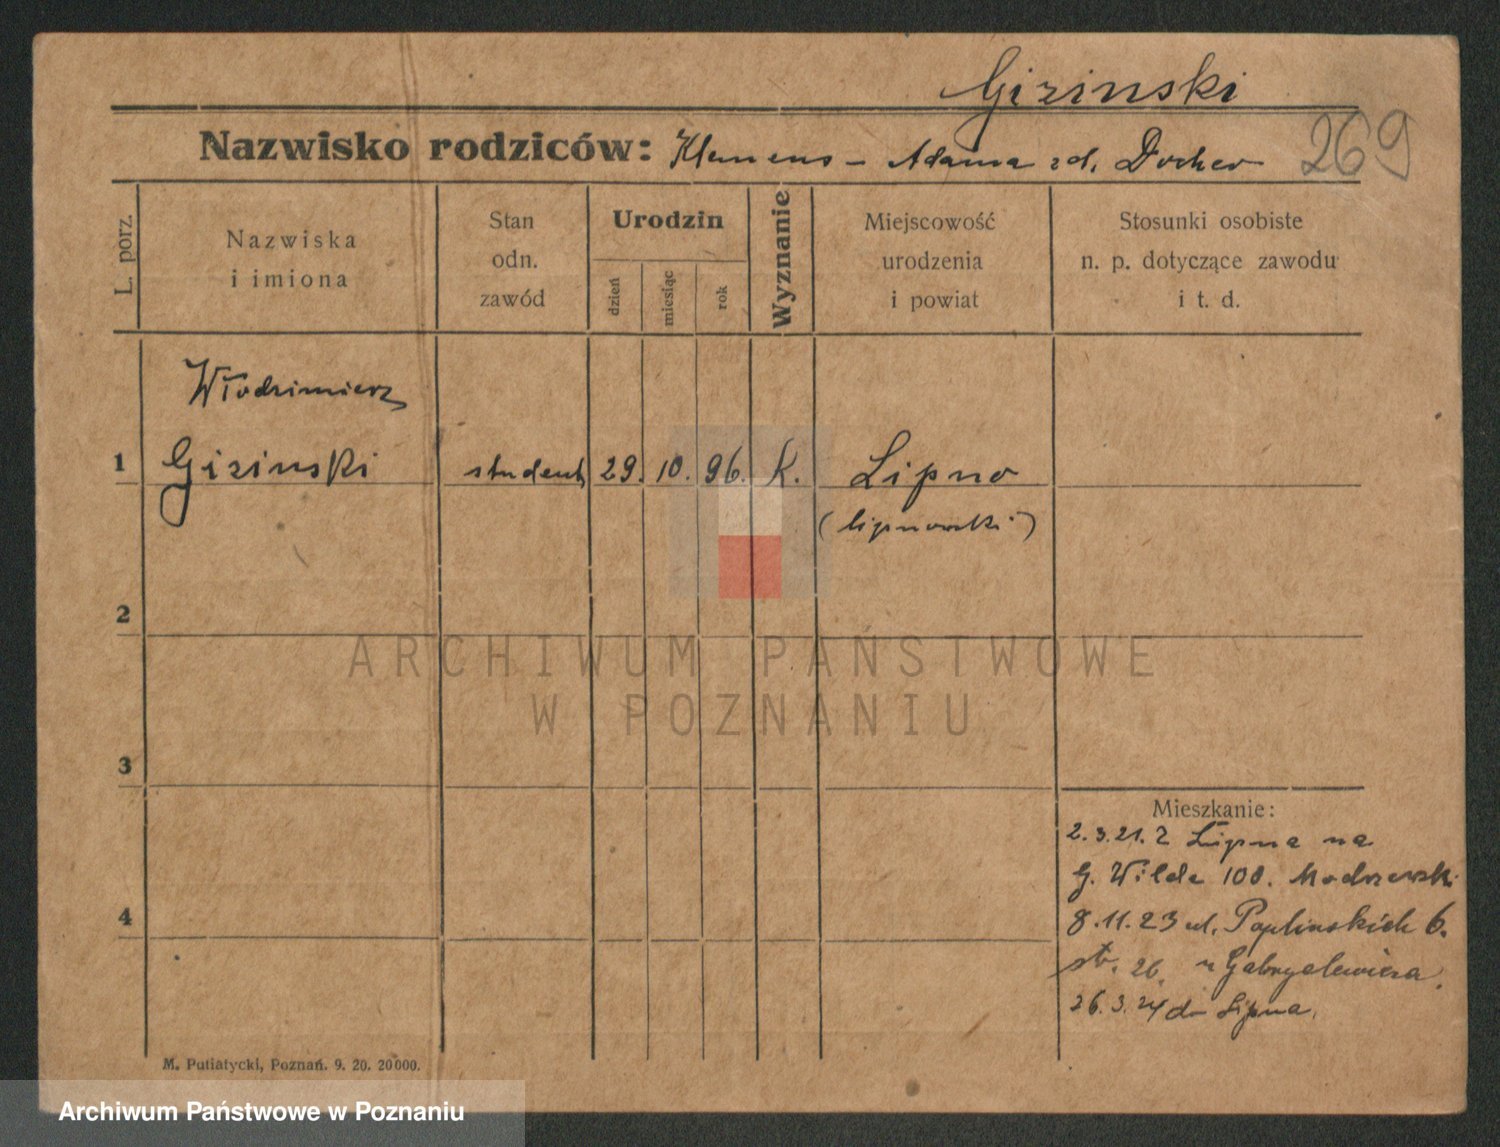 Gizinski
269
Nazwisko rodziców: Klemens - Adama zd. Docher
L. porz.
Nazwiska
i imiona
Stan
odn.
zawód
Urodzin
dzień
miesiąc
rok
Wyznanie
Miejscowość
urodzenia
i powiat
Stosunki osobiste
n. p. dotyczące zawodu
i t. d.
Włodzimierz
1 Gizinski student 29. 10. 96. K. Lipno
(lipnowski)
2
ARCHIWUM PAŃSTWOWE
W POZNANIU
3
Mieszkanie:
2.3.21. z Lipna na
G. Wilda 108. Modrzewski
4
8.11.23 ul. Poplinskich 6.
str. 26. u Gabryelewicza.
26.3.24 do Lipna.
M. Putiatycki, Poznań. 9. 20. 20000.
Archiwum Państwowe w Poznaniu